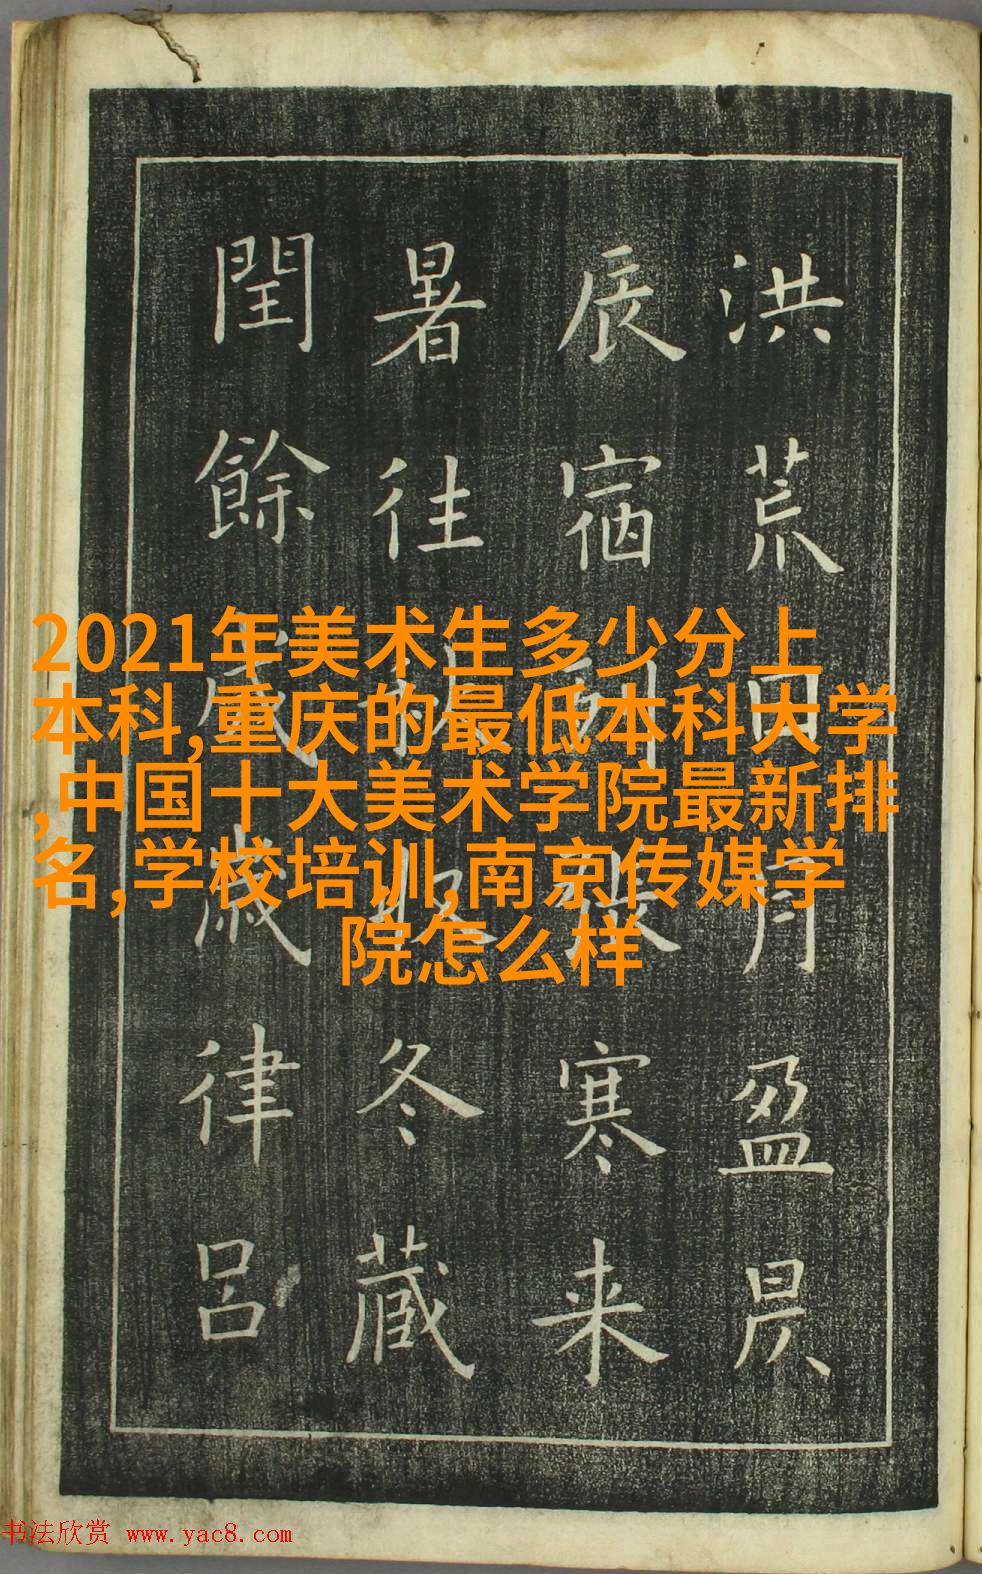 洪荒日月盈昃
辰宿列張寒来
暑往秋收冬藏
閏餘成歲律呂
2021年美术生多少分上
本科,重庆的最低本科大学
,中国十大美术学院最新排
名,学校培训,南京传媒学
院怎么样
书法欣赏 www.yac8.com